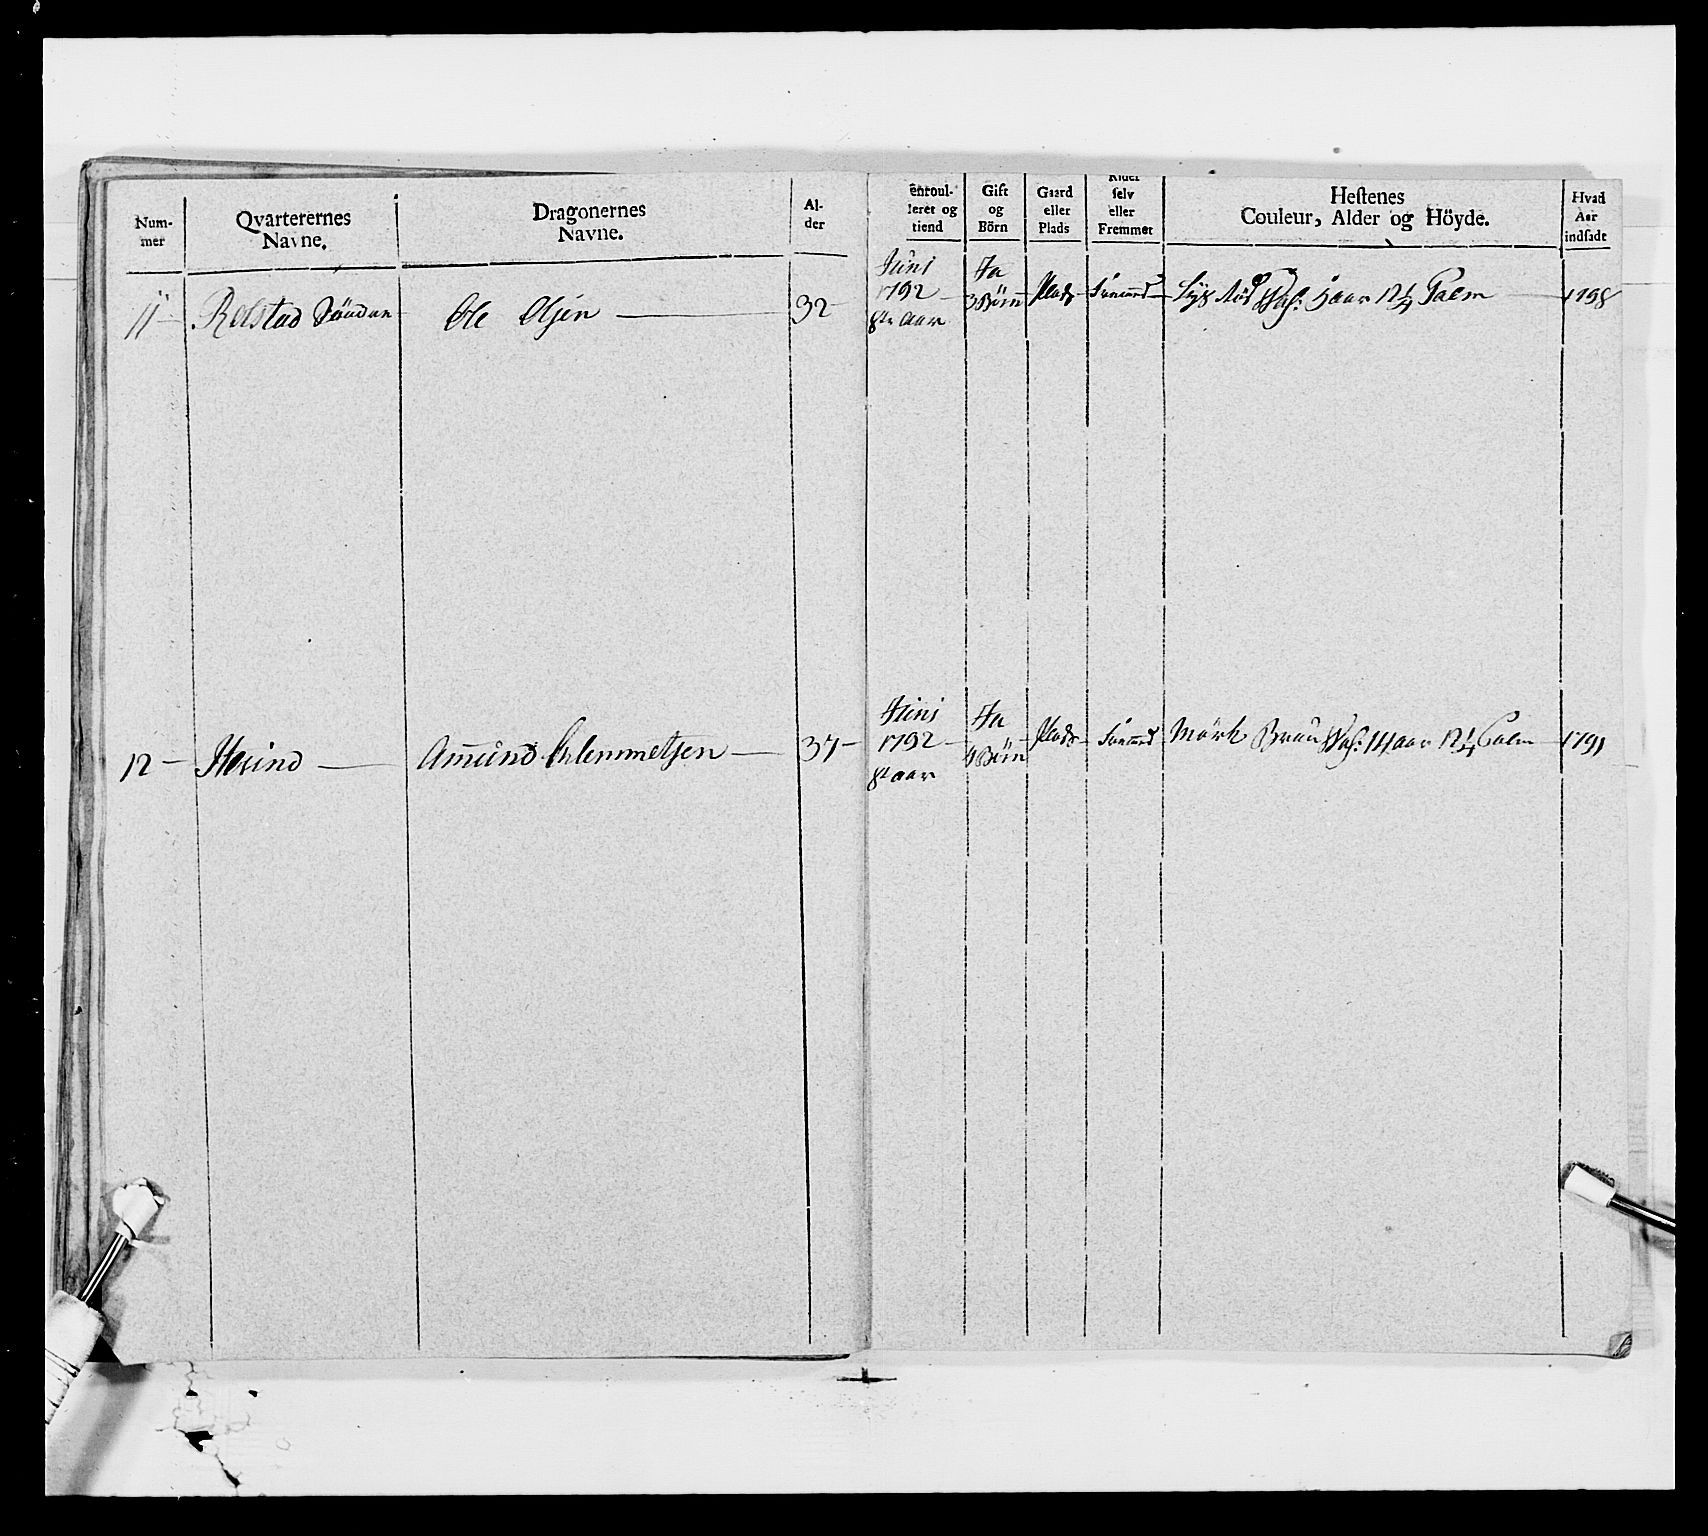 Num-
mer
Qvarterernes
Navne.
Dragonernes
Navne.
Al-
der
enroul-
leret og
tiend
Gift
og
Börn
Gaard
eller
Plads
Rider
selv
eller
Fremmet
Hestenes
Couleur, Alder og Höyde.
Hvad
Aar
indsadt
11 Rolstad Söndre Ole Olsen 32
Juni
1792
8te aar
Ja
3 Börn
Plads
Fremmed
Lys Röd 5 aar 12 1/4 Palm
1798
12 Hovind Amund Clemmetsen 37
Juni
1792
8t aar
Ja
4 Börn
Plads
Fremmed
Mörk Brun 14 aar 12 1/4 Palm
1791